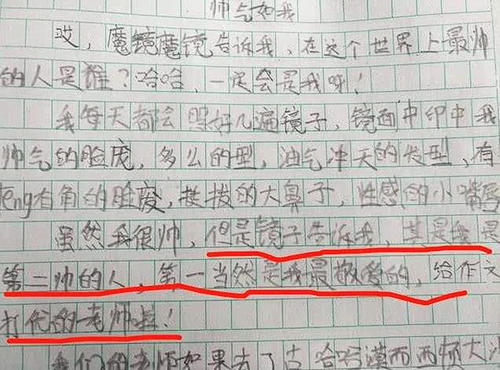 帅气如我
哎,魔镜魔镜告诉我,在这个世界上最帅
的人是谁?哈哈,一定会是我呀!
我每天都会照好几遍镜子,镜面中印中我
帅气的脸庞,多么的型,油气冲天的发型,有
leng有角的脸庞,挺拔的大鼻子,性感的小嘴
虽然我很帅,但是镜子告诉我,其是我是
第二帅的人,第一当然是我最敬爱的,给作文
打优的老师啦!
我们的老师如果去了古